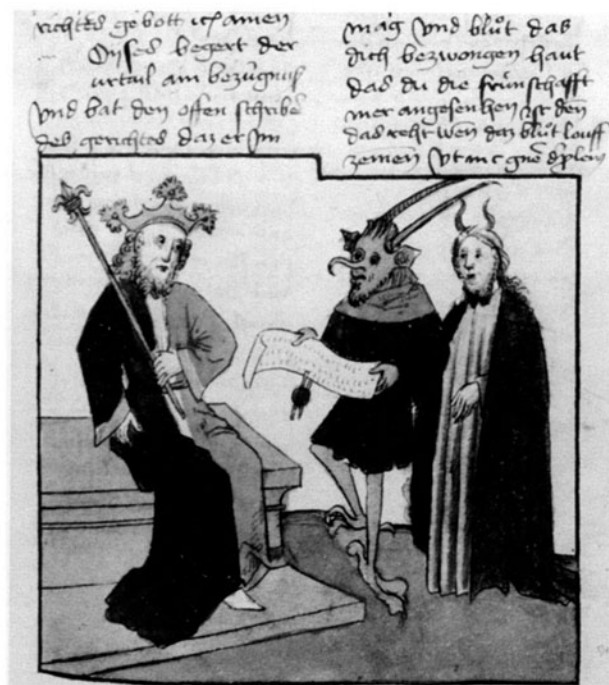 richtes gebott ich amen
Dyses begert der
urtail am bezügnuß
Vnd bat den offen schriber
des gerichtes daz er Im
mag Vnd blůt das
dich bezwongen haut
das du die frünschafft
mer angesenhen ist den
das reht wen daz blůt louff
zemen Vt in c